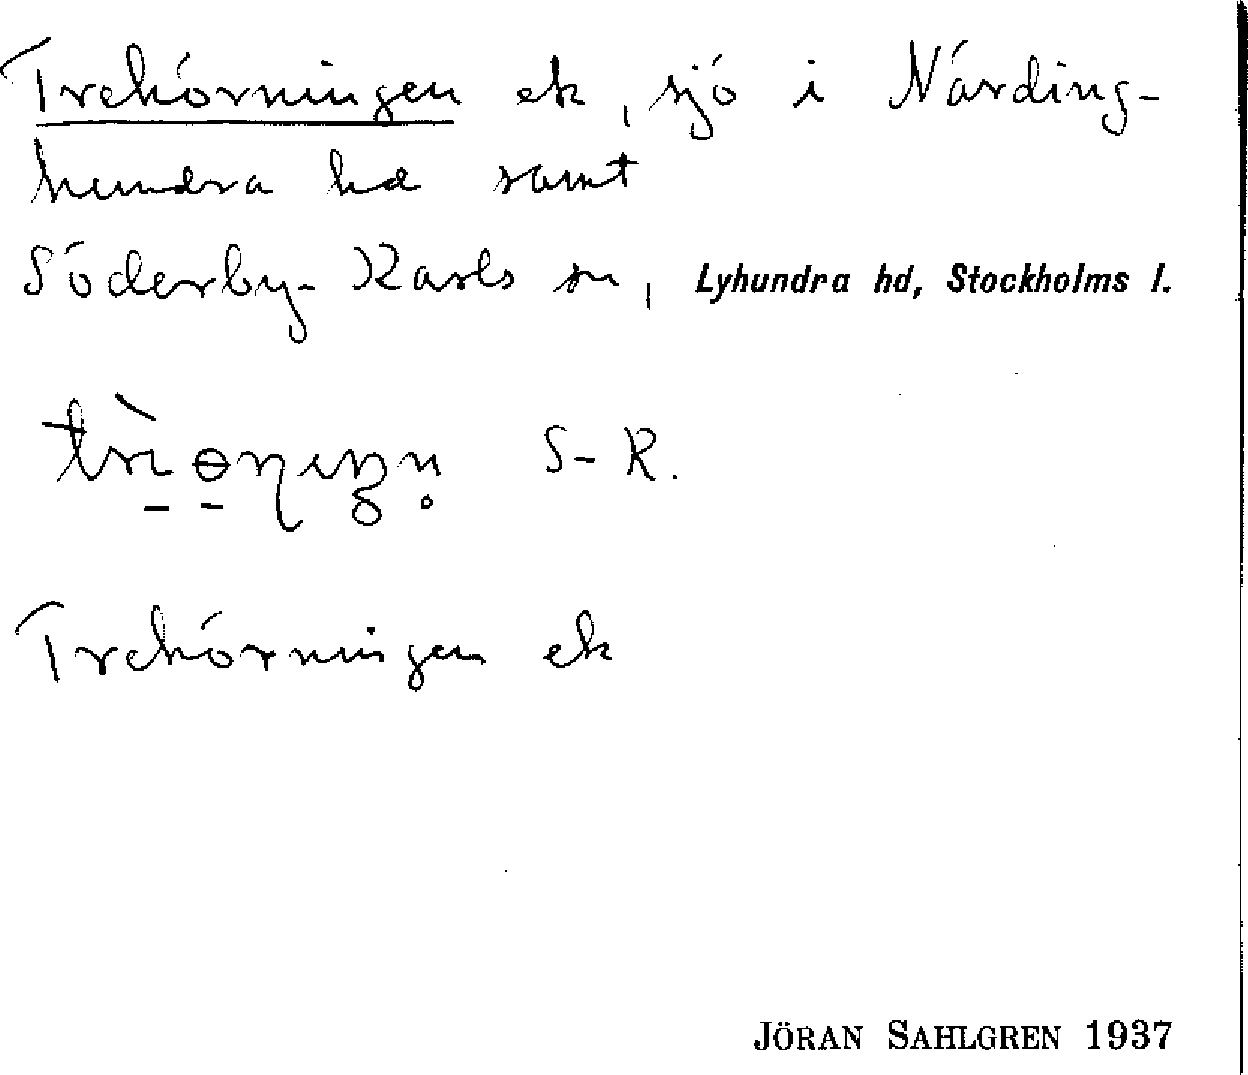 Trehörningen ek, sjö i Närding-
hundra hd samt
Söderby-Karls sn, Lyhundra hd, Stockholms l.
S-R.
Trehörningen ek
JÖRAN SAHLGREN 1937